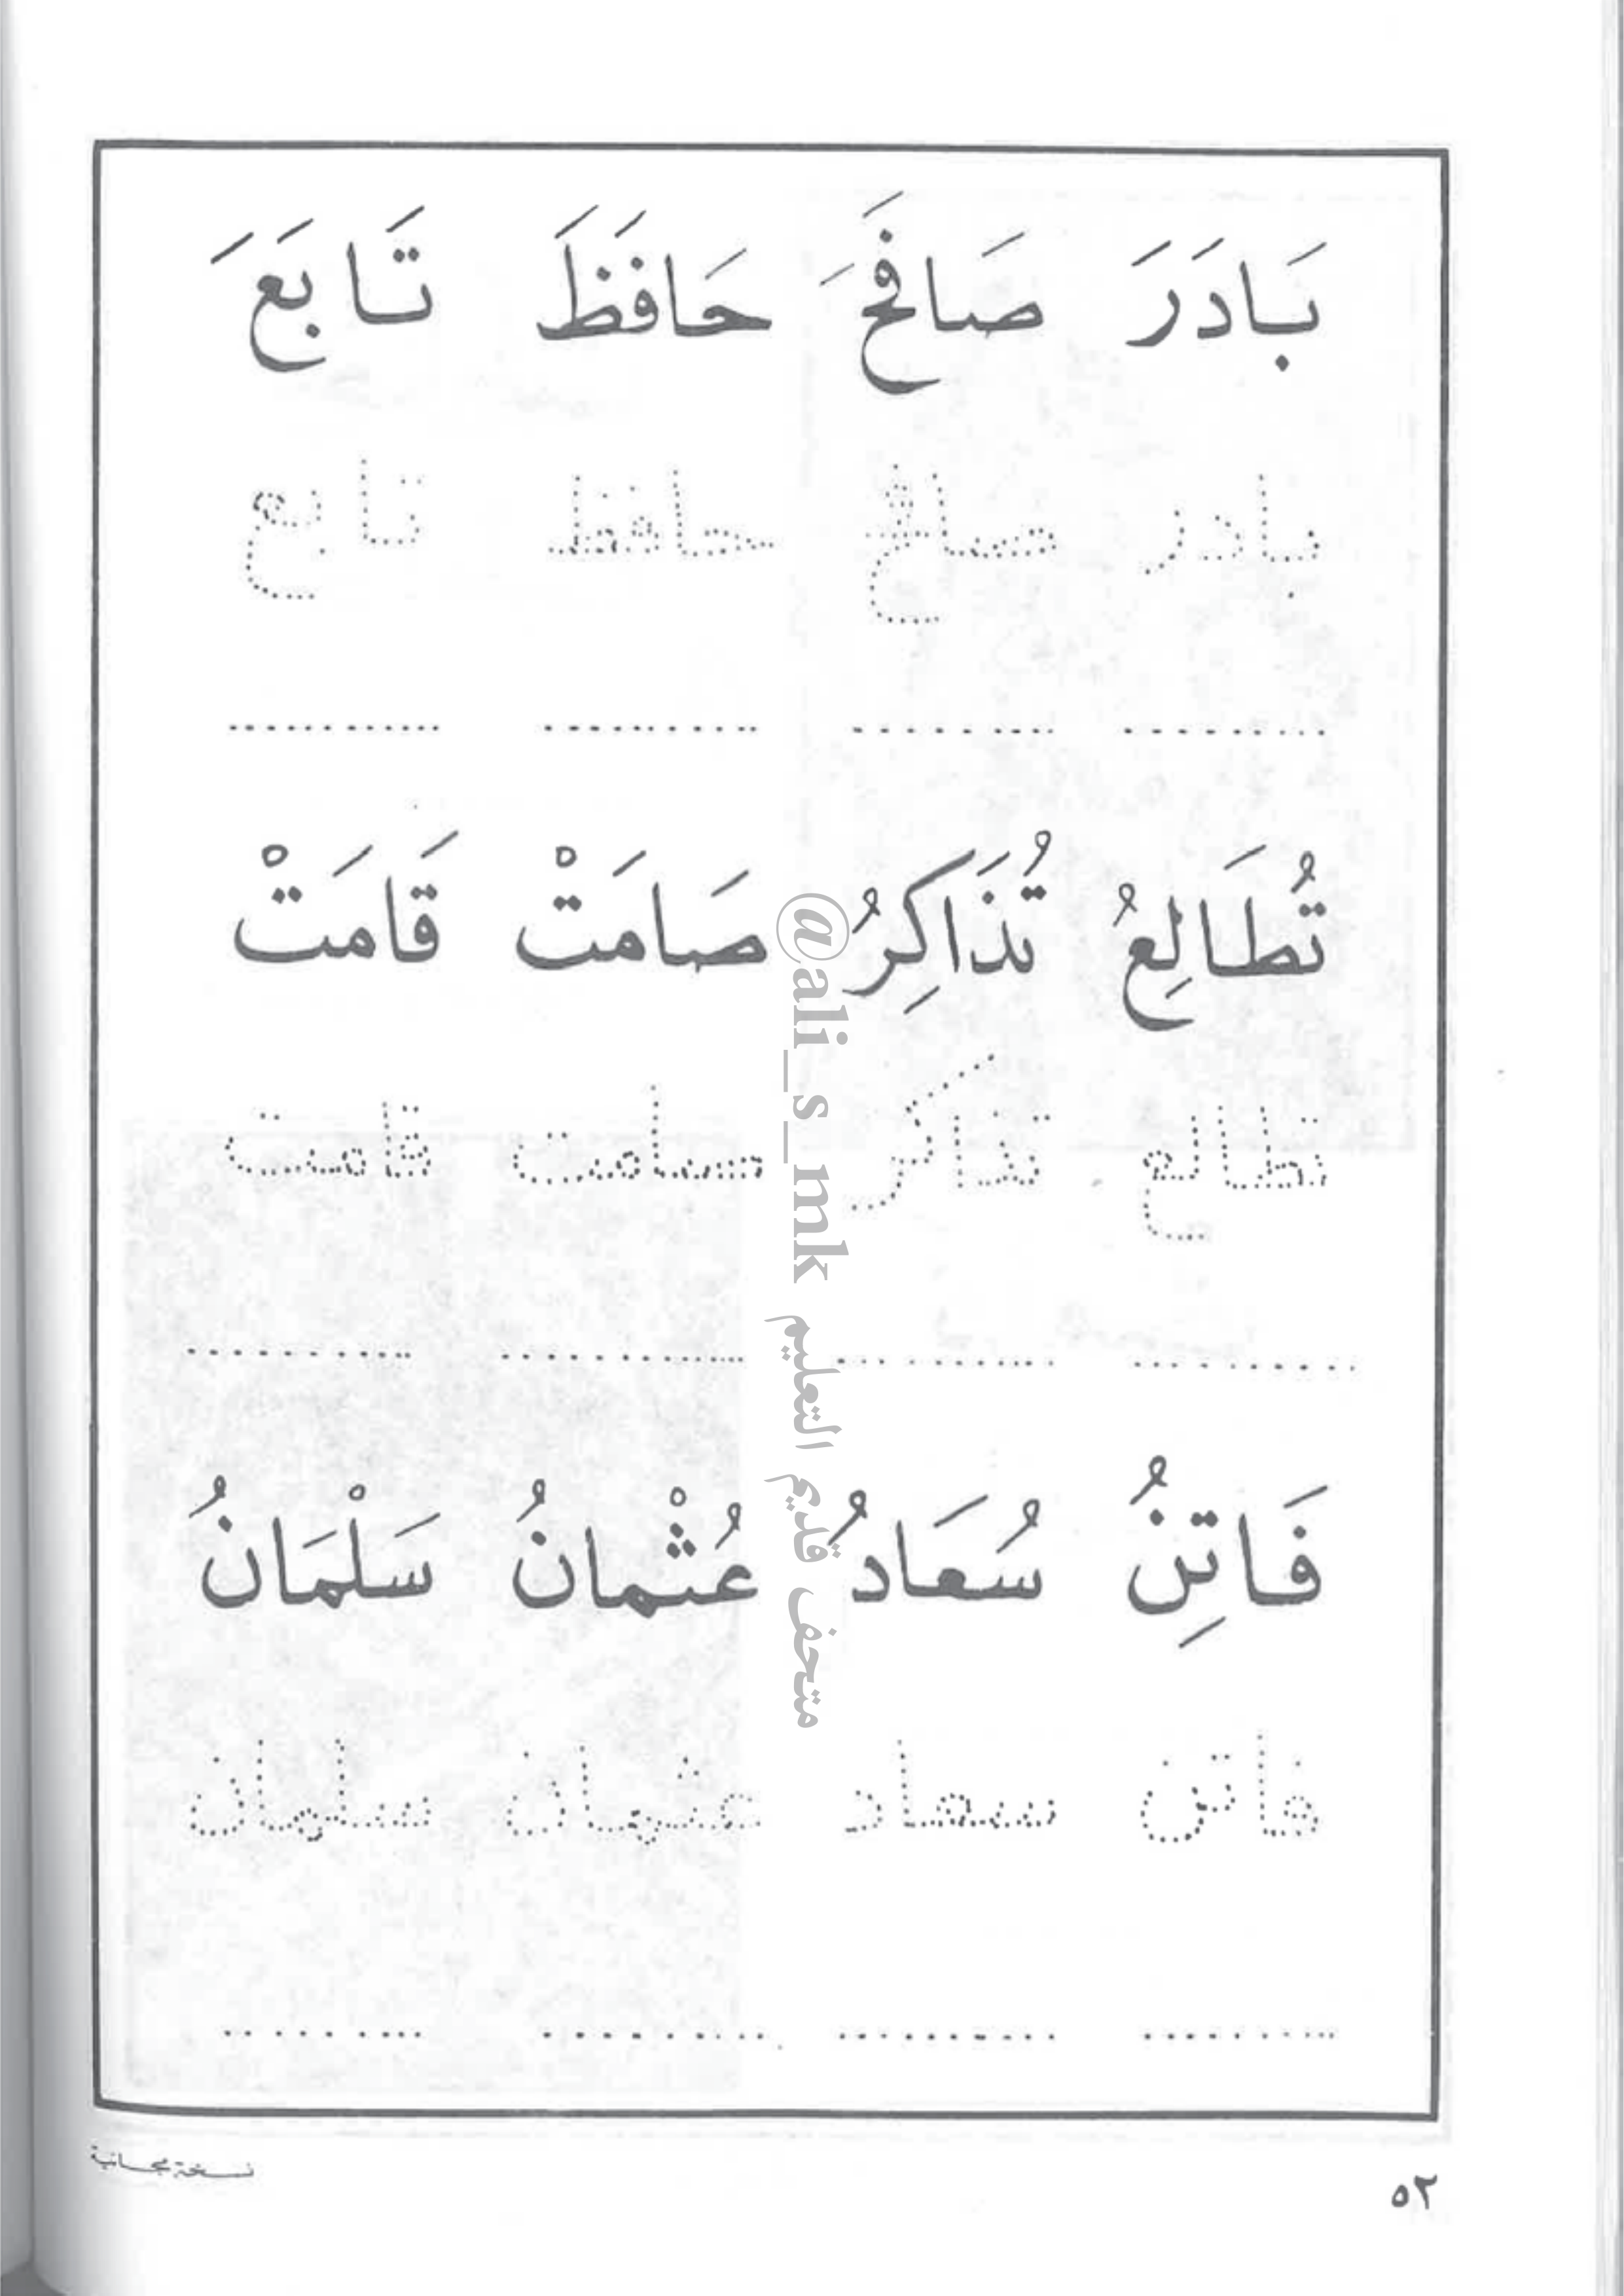 بَادَرَ صَافَحَ حَافَظَ تَابَعَ
بادر صافح حافظ تابع
تُطَالِعُ تُذَاكِرُ صَامَتْ قَامَتْ
تطالع تذاكر صامت قامت
فَاتِنُ سُعَادُ عُثْمانُ سَلْمَانُ
فاتن سعاد عثمان سلمان
@ali_s_mk متحف قديم التعليم
نسخة مجانية
٥٢